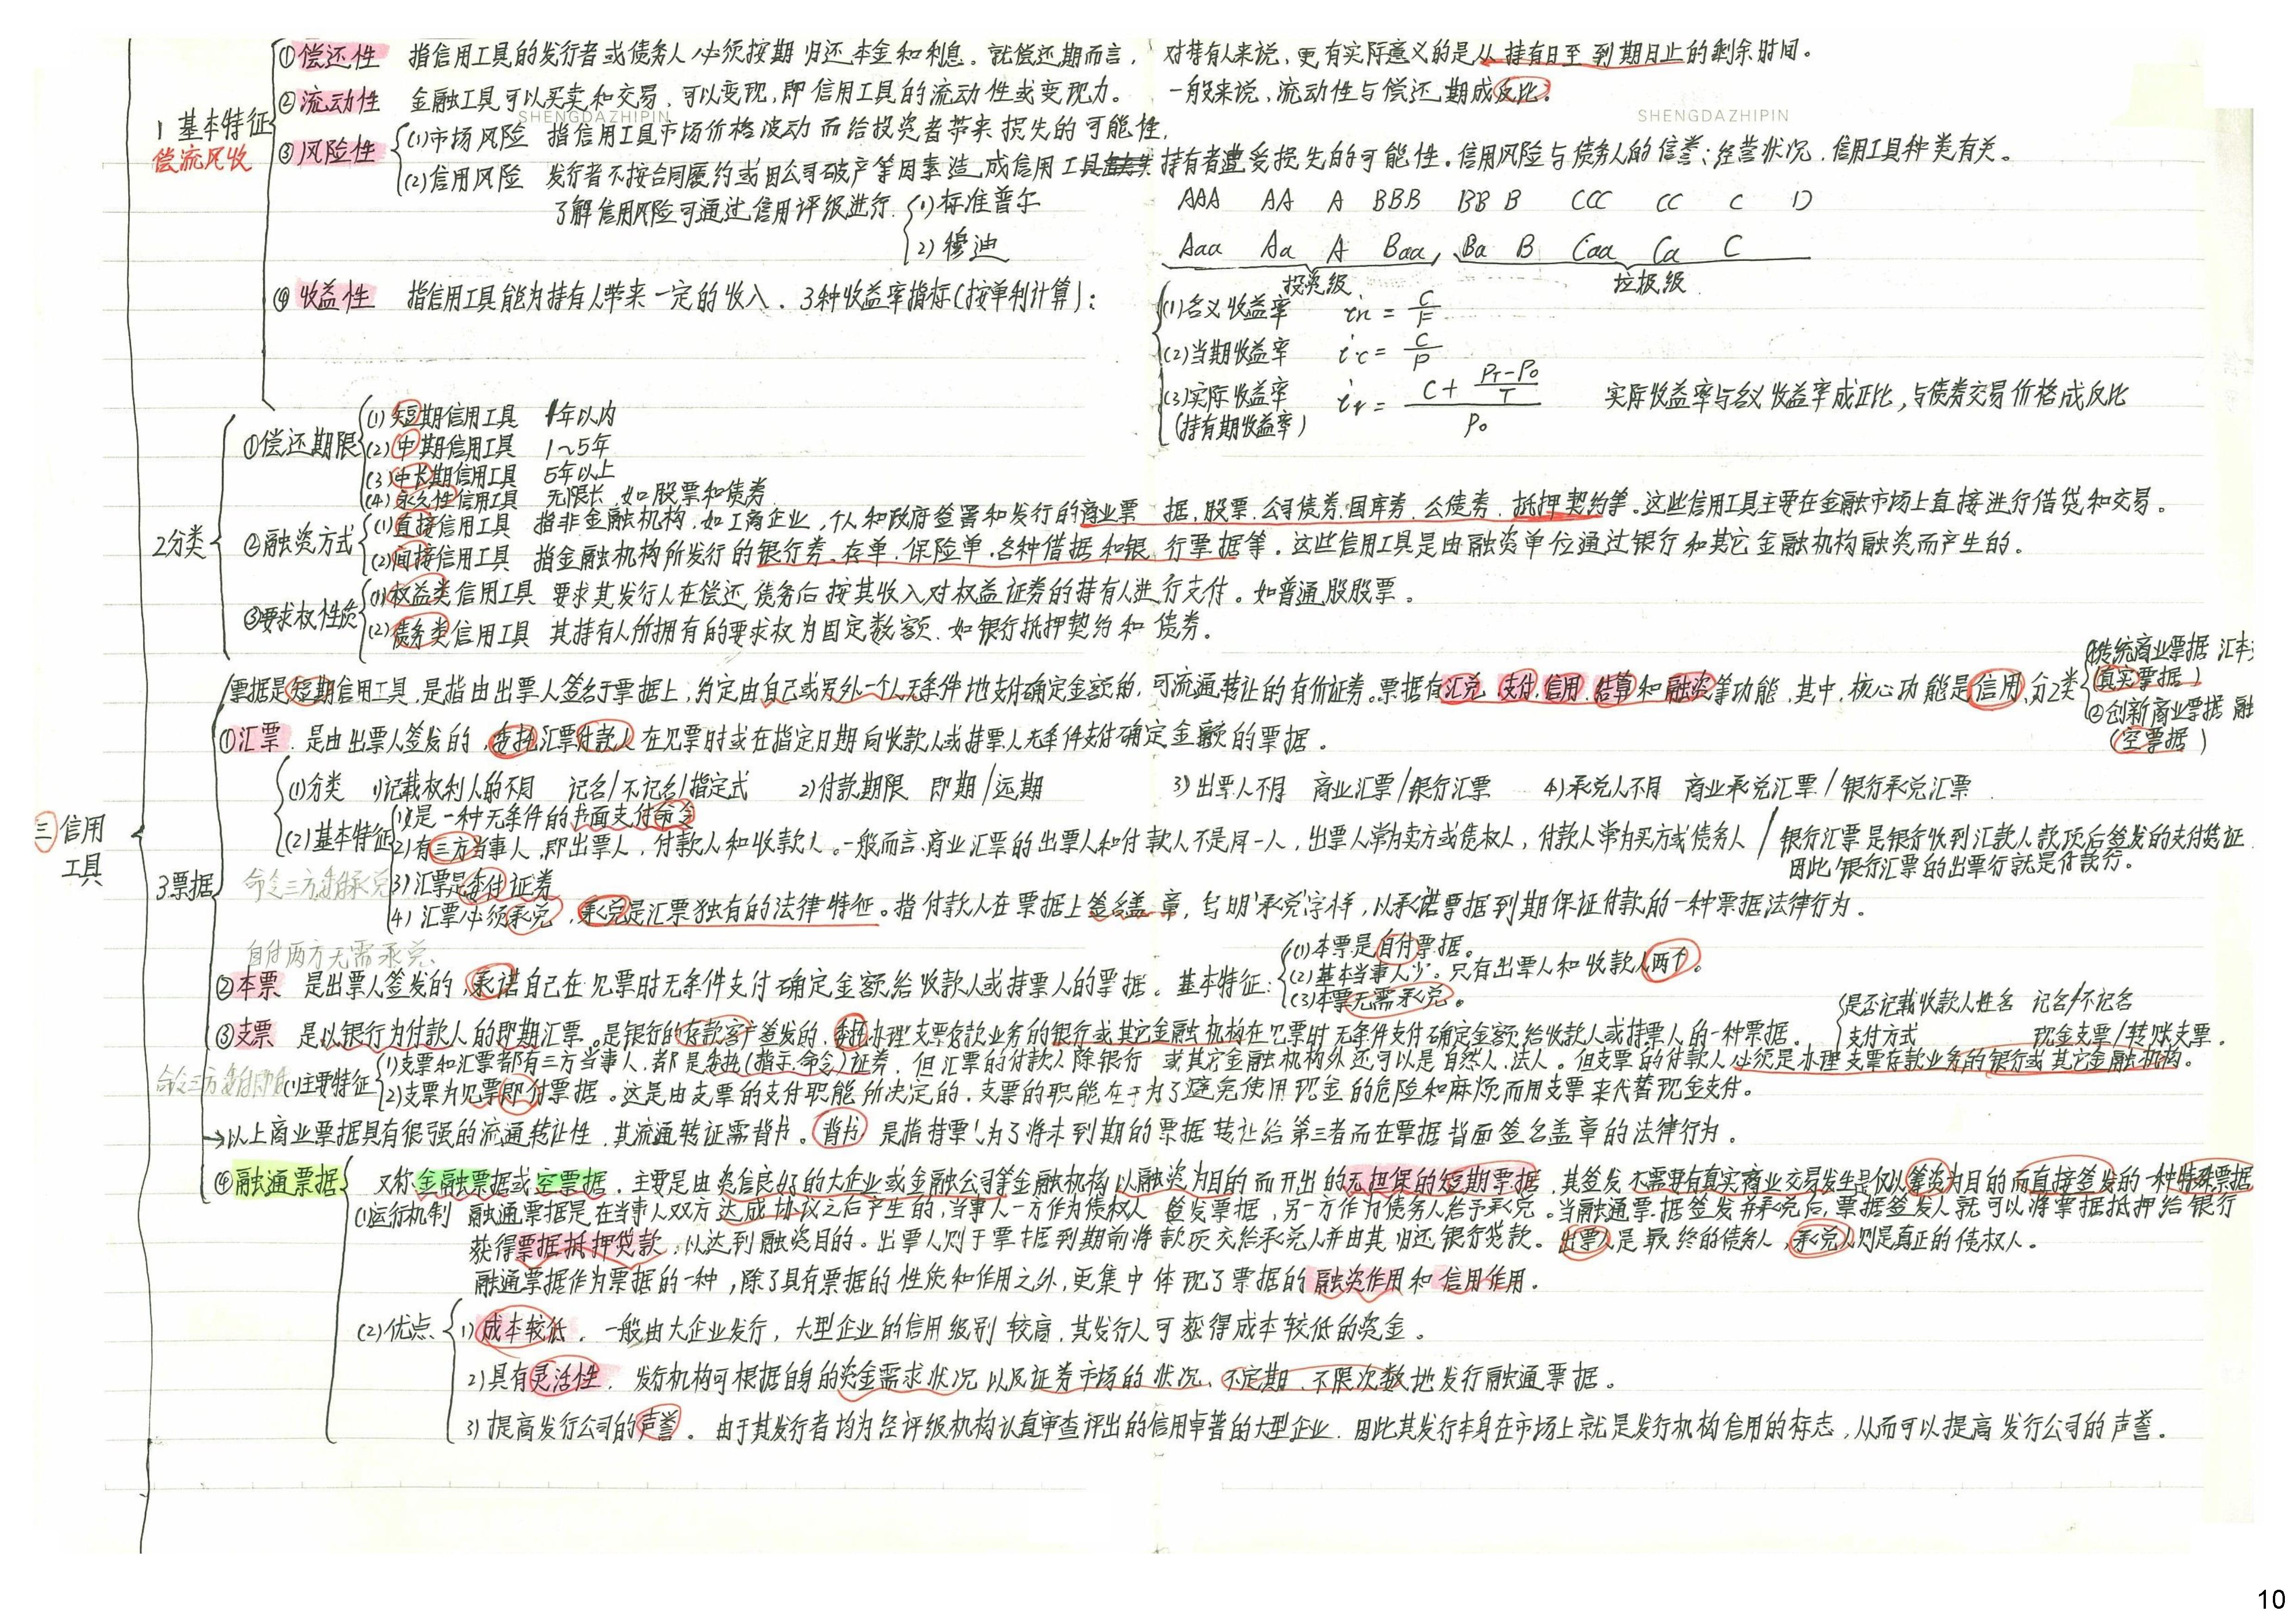 ①偿还性 指信用工具的发行者或债务人必须按期归还本金和利息。就偿还期而言, 对持有人来说、更有实际意义的是从持有日至到期日止的剩余时间。
②流动性 金融工具可以买卖和交易、可以变现,即信用工具的流动性或变现力。 一般来说、流动性与偿还期成反比。
SHENGDAZHIPIN SHENGDAZHIPIN
1 基本特征
偿流风收
③风险性 (1)市场风险 指信用工具市场价格波动而给投资者带来损失的可能性.
(2)信用风险 发行者不按合同履约或因公司破产等因素造成信用工具持有者遭受损失的可能性.信用风险与债务人的信誉;经营状况.信用工具种类有关。
了解信用风险可通过信用评级进行. 1)标准普尔 AAA AA A BBB BB B CCC CC C D
2)穆迪 Aaa Aa A Baa, Ba B Caa Ca C
投资级 垃圾级
④收益性 指信用工具能为持有人带来一定的收入. 3种收益率指标(按单利计算):
(1)名义收益率 in = C/F
(2)当期收益率 ic = C/P
(3)实际收益率 ir = (C + (PT-P0)/T)/P0 实际收益率与名义收益率成正比,与债券交易价格成反比
(持有期收益率)
2分类
①偿还期限
(1)短期信用工具 1年以内
(2)中期信用工具 1~5年
(3)中长期信用工具 5年以上
(4)永久性信用工具 无限长 如股票和债券
②融资方式
(1)直接信用工具 指非金融机构.如工商企业,个人和政府签署和发行的商业票据,股票.公司债券.国库券.公债券.抵押契约等.这些信用工具主要在金融市场上直接进行借贷和交易。
(2)间接信用工具 指金融机构所发行的银行券、存单.保险单.各种借据和银行票据等。这些信用工具是由融资单位通过银行和其它金融机构融资而产生的。
③要求权性质
(1)权益类信用工具 要求其发行人在偿还债务后按其收入对权益证券的持有人进行支付。如普通股股票。
(2)债务类信用工具 其持有人所拥有的要求权为固定数额.如银行抵押契约和债券。
三 信用
工具
3票据
票据是短期信用工具,是指由出票人签名于票据上,约定由自己或另外一个人无条件地支付确定金额的,可流通转让的有价证券.票据有汇兑、支付.信用.结算和融资等功能.其中,核心功能是信用.分2类
①传统商业票据 汇本
(真实票据)
②创新商业票据 融
(空票据)
①汇票.是由出票人签发的,委托汇票付款人在见票时或在指定日期向收款人或持票人无条件支付确定金额的票据。
(1)分类 1)记载权利人的不同 记名/不记名/指定式 2)付款期限 即期/远期 3)出票人不同 商业汇票/银行汇票 4)承兑人不同 商业承兑汇票/银行承兑汇票
(2)基本特征
1)是一种无条件的书面支付命令
2)有三方当事人.即出票人,付款人和收款人。一般而言.商业汇票的出票人和付款人不是同一人,出票人常为卖方或债权人,付款人常为买方或债务人/银行汇票是银行收到汇款人款项后签发的支付凭证
因此,银行汇票的出票行就是付款行.
命令三方委付承兑
3)汇票是委付证券
4)汇票必须承兑,承兑是汇票独有的法律特征。指付款人在票据上签名盖章,写明'承兑'字样,以承诺票据到期保证付款的一种票据法律行为.
自付两方无需承兑、
②本票 是出票人签发的,承诺自己在见票时无条件支付确定金额给收款人或持票人的票据。基本特征:
(1)本票是自付票据。
(2)基本当事人少。只有出票人和收款人两个。
(3)本票无需承兑。
③支票 是以银行为付款人的即期汇票。是银行的存款客户签发的.委托办理支票存款业务的银行或其它金融机构在见票时无条件支付确定金额给收款人或持票人的一种票据。
是否记载收款人姓名 记名/不记名
支付方式 现金支票/转账支票.
(1)主要特征
1)支票和汇票都有三方当事人.都是委托(指示.命令)证券.但汇票的付款人除银行或其它金融机构外还可以是自然人.法人。但支票的付款人必须是办理支票存款业务的银行或其它金融机构。
2)支票为见票即付票据。这是由支票的支付职能所决定的.支票的职能在于为了避免使用现金的危险和麻烦而用支票来代替现金支付。
→以上商业票据具有很强的流通转让性.其流通转证需背书。背书 是指持票人为了将未到期的票据转让给第三者而在票据背面签名盖章的法律行为。
④融通票据 又称金融票据或空票据.主要是由资信良好的大企业或金融公司等金融机构以融资为目的而开出的无担保的短期票据.其签发不需要有真实商业交易发生是仅以筹资为目的而直接签发的一种特殊票据
(1)运行机制 融通票据是在当事人双方达成协议之后产生的,当事人一方作为债权人签发票据,另一方作为债务人给予承兑。当融通票据签发并承兑后,票据签发人就可以将票据抵押给银行
获得票据抵押贷款,以达到融资目的。出票人则于票据到期前将款项交给承兑人并由其归还银行贷款。出票人是最终的债务人,承兑人则是真正的债权人.
融通票据作为票据的一种,除了具有票据的性质和作用之外,更集中体现了票据的融资作用和信用作用.
(2)优点、
1)成本较低.一般由大企业发行,大型企业的信用级别较高,其发行人可获得成本较低的资金。
2)具有灵活性. 发行机构可根据自身的资金需求状况以及证券市场的状况、不定期.不限次数地发行融通票据。
3)提高发行公司的声誉。由于其发行者均为经评级机构认真审查评出的信用卓著的大型企业.因此其发行本身在市场上就是发行机构信用的标志,从而可以提高发行公司的声誉。
10